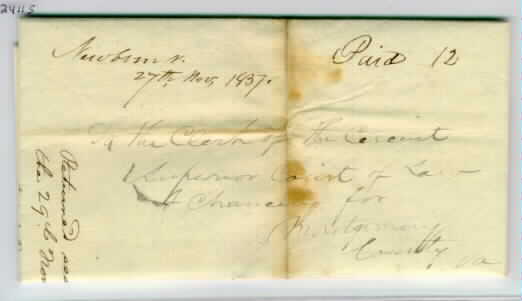 24115
Newbern V.
27th Nov, 1837.
Paid 12
To the Clerk of the Circuit
Superior Court of Law
& Chancery for
Montgomery
County Va
Returned
the 29th Nov